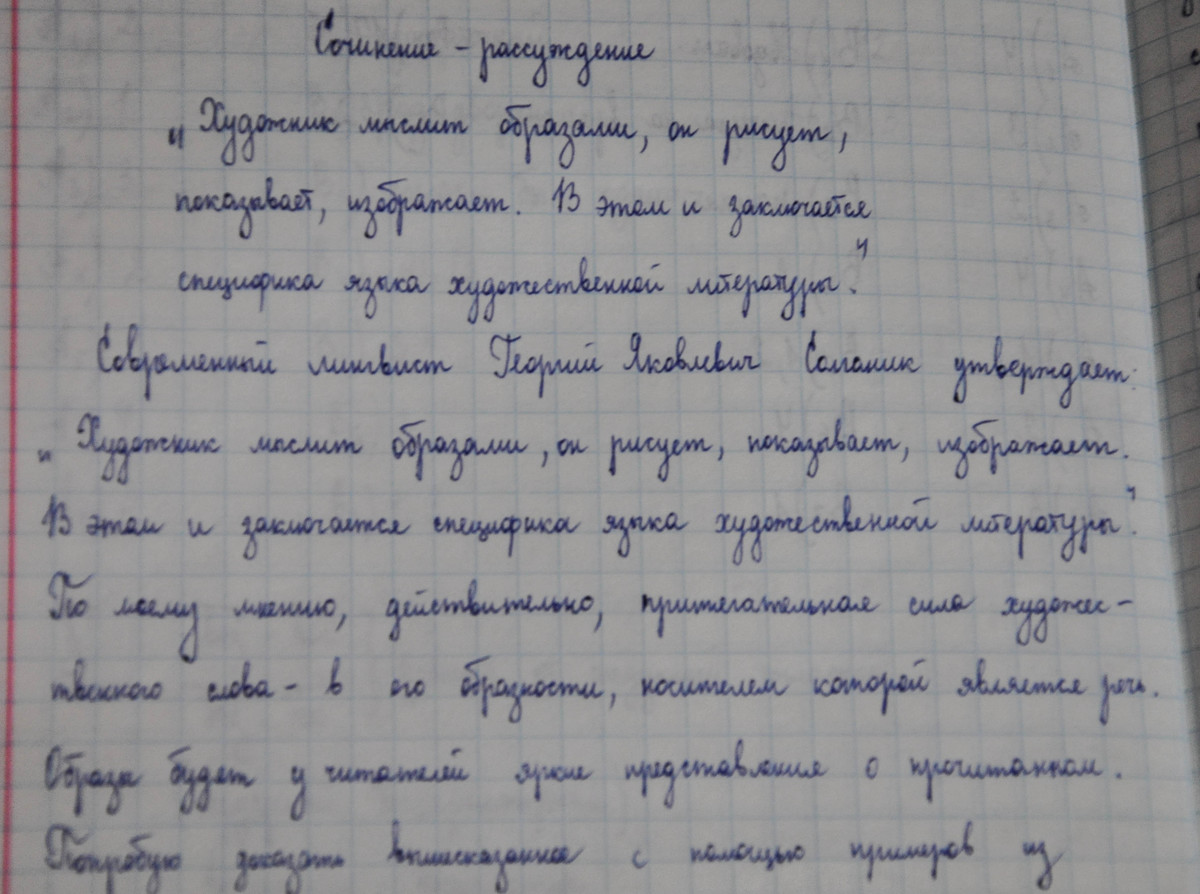 Сочинение - рассуждение
„Художник мыслит образами, он рисует,
показывает, изображает. В этом и заключается
специфика языка художественной литературы."
Современный лингвист Георгий Яковлевич Солганик утверждает:
„Художник мыслит образами, он рисует, показывает, изображает.
В этом и заключается специфика языка художественной литературы."
По моему мнению, действительно, притягательная сила художес-
твенного слова - в его образности, носителем которой является речь.
Образы будят у читателей яркие представления о прочитанном.
Попробую доказать вышесказанное с помощью примеров из